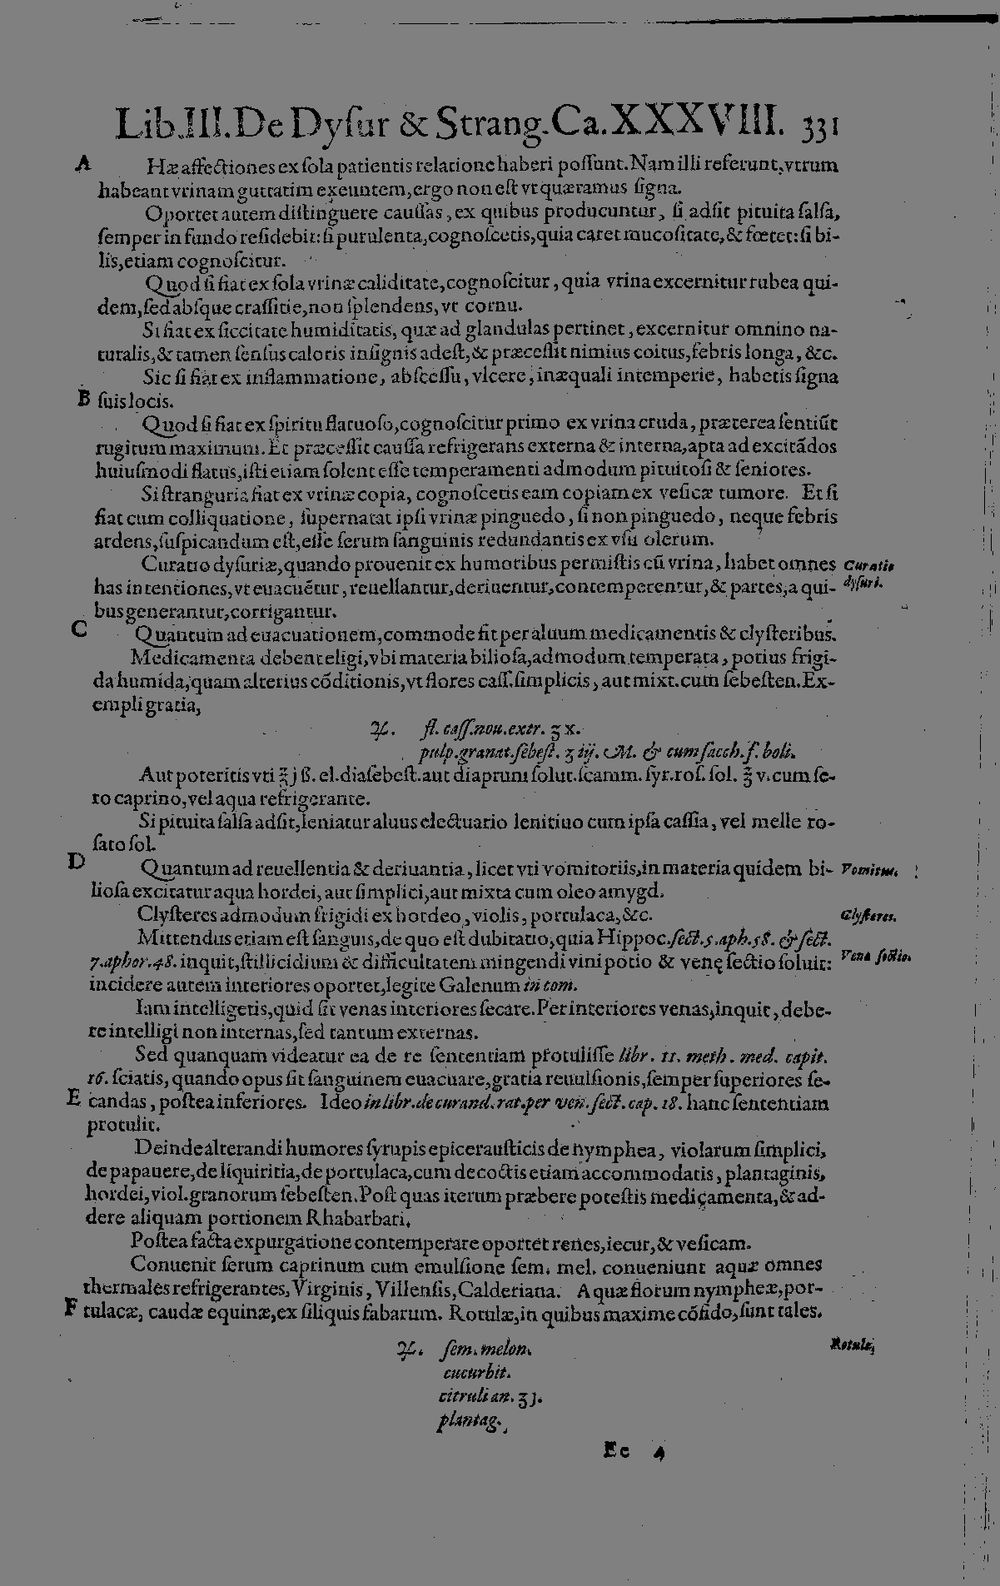 Lib.III.De Dyſur & Strang.Ca.XXXVIII. 331
A Hæ affectiones ex ſola patientis relatione haberi poſſunt.Nam illi referunt,vtrum
habeant vrinam guttatim exeuntem,ergo non eſt vt quæramus ſigna.
Oportet autem diſtinguere cauſſas, ex quibus producuntur, ſi adſit pituita ſalſa,
ſemper in fundo reſidebit: ſi purulenta,cognoſcetis,quia caret mucoſitate,& fœtet: ſi bi-
lis,etiam cognoſcitur.
Quod ſi fiat ex ſola vrinæ caliditate,cognoſcitur, quia vrina excernitur rubea qui-
dem,ſed abſque craſſitie,non ſplendens,vt cornu.
Si fiat ex ſiccitate humiditatis, quæ ad glandulas pertinet, excernitur omnino na-
turalis,& tamen ſenſus caloris inſignis adeſt,& præceſſit nimius coitus,febris longa, &c.
Sic ſi fiat ex inflammatione, abſceſſu, vlcere, inæquali intemperie, habetis ſigna
B ſuis locis.
Quod ſi fiat ex ſpiritu flatuoſo,cognoſcitur primo ex vrina cruda, præterea ſentiūt
rugitum maximum. Et præceſſit cauſſa refrigerans externa & interna,apta ad excitādos
huiuſmodi flatus,iſti etiam ſolent eſſe temperamenti admodum pituitoſi & ſeniores.
Si ſtranguria fiat ex vrinæ copia, cognoſcetis eam copiam ex veſicæ tumore. Et ſi
fiat cum colliquatione, ſupernatat ipſi vrinæ pinguedo, ſi non pinguedo, neque febris
ardens,ſuſpicandum eſt,eſſe ſerum ſanguinis redundantis ex vſu olerum.
Curatio dyſuriæ,quando prouenit ex humoribus permiſtis cū vrina, habet omnes Curatio
has intentiones,vt euacuētur, reuellantur,deriuentur,contemperentur,& partes,a qui- dyſuri.
bus generantur,corrigantur.
C Quantum ad euacuationem,commode fit per aluum medicamentis & clyſteribus.
Medicamenta debent eligi,vbi materia bilioſa,admodum temperata, potius frigi-
da humida,quam alterius cōditionis,vt flores caſſ.ſimplicis, aut mixt.cum ſebeſten.Ex-
empli gratia,
♃. fl. caſſ.nou.extr. ʒ x.
pulp.granat.ſebeſt. ʒ iij. M. & cum ſacch.f. boli.
Aut poteritis vti ℥ j ß. el.diaſebeſt.aut diapruni ſolut.ſcamm. ſyr.roſ. ſol. ℥ v.cum ſe-
ro caprino,vel aqua refrigerante.
Si pituita ſalſa adſit,leniatur aluus electuario lenitiuo cum ipſa caſſia, vel melle ro-
ſato ſol.
D Quantum ad reuellentia & deriuantia, licet vti vomitoriis,in materia quidem bi- Vomitus.
lioſa excitatur aqua hordei, aut ſimplici,aut mixta cum oleo amygd.
Clyſteres admodum frigidi ex hordeo, violis, portulaca,&c. Clyſteres.
Mittendus etiam eſt ſanguis,de quo eſt dubitatio,quia Hippoc.ſect.5.aph.58. & ſect.
7.aphor.48. inquit,ſtillicidium & difficultatem mingendi vini potio & venę ſectio ſoluit: Vena ſectio.
incidere autem interiores oportet,legite Galenum in com.
Iam intelligetis,quid ſit venas interiores ſecare.Per interiores venas,inquit, debe-
re intelligi non internas,ſed tantum externas.
Sed quanquam videatur ea de re ſententiam protuliſſe libr. 11. meth. med. capit.
16. ſciatis, quando opus ſit ſanguinem euacuare,gratia reuulſionis,ſemper ſuperiores ſe-
E candas, poſtea inferiores. Ideo in libr.de curand.rat.per ven.ſect.cap. 18. hanc ſententiam
protulit.
Deinde alterandi humores ſyrupis epiceraulticis de nymphea, violarum ſimplici,
de papauere,de liquiritia,de portulaca,cum decoctis etiam accommodatis, plantaginis,
hordei, viol.granorum ſebeſten.Poſt quas iterum præbere poteſtis medicamenta,& ad-
dere aliquam portionem Rhabarbari.
Poſtea facta expurgatione contemperare oportet renes,iecur,& veſicam.
Conuenit ſerum caprinum cum emulſione ſem. mel. conueniunt aquæ omnes
thermales refrigerantes, Virginis, Villenſis,Calderiana. Aquæ florum nympheæ,por-
F tulacæ, caudæ equinæ,ex ſiliquis fabarum. Rotulæ,in quibus maxime cōfido,ſunt tales.
♃. ſem. melon. Rotulæ
cucurbit.
citruli an. ʒ j.
plantag.
Ee 4